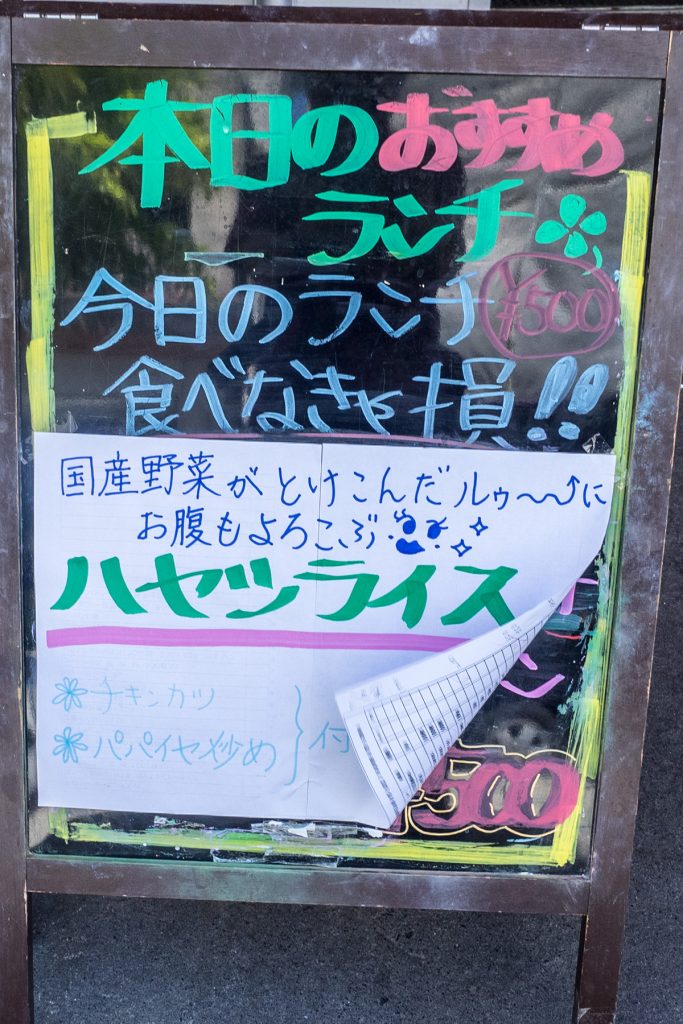 本日のおすすめ
ランチ
今日のランチ ¥500
食べなきゃ損!!
国産野菜がとけこんだルゥ〜〜に
お腹もよろこぶ
ハヤシライス
チキンカツ
パパイヤ炒め
付
¥500